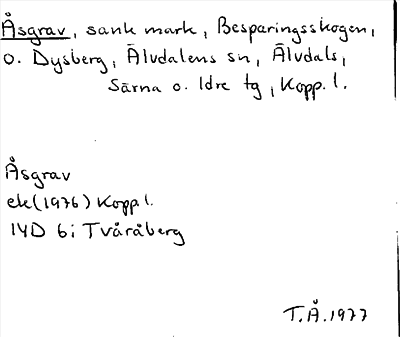 Åsgrav, sank mark, Besparingsskogen,
o. Dysberg, Älvdalens sn, Älvdals,
Särna o. Idre tg, Kopp. l.
Åsgrav
ek (1976) Kopp l.
14D 6i Tvåråberg
T.Å. 1977